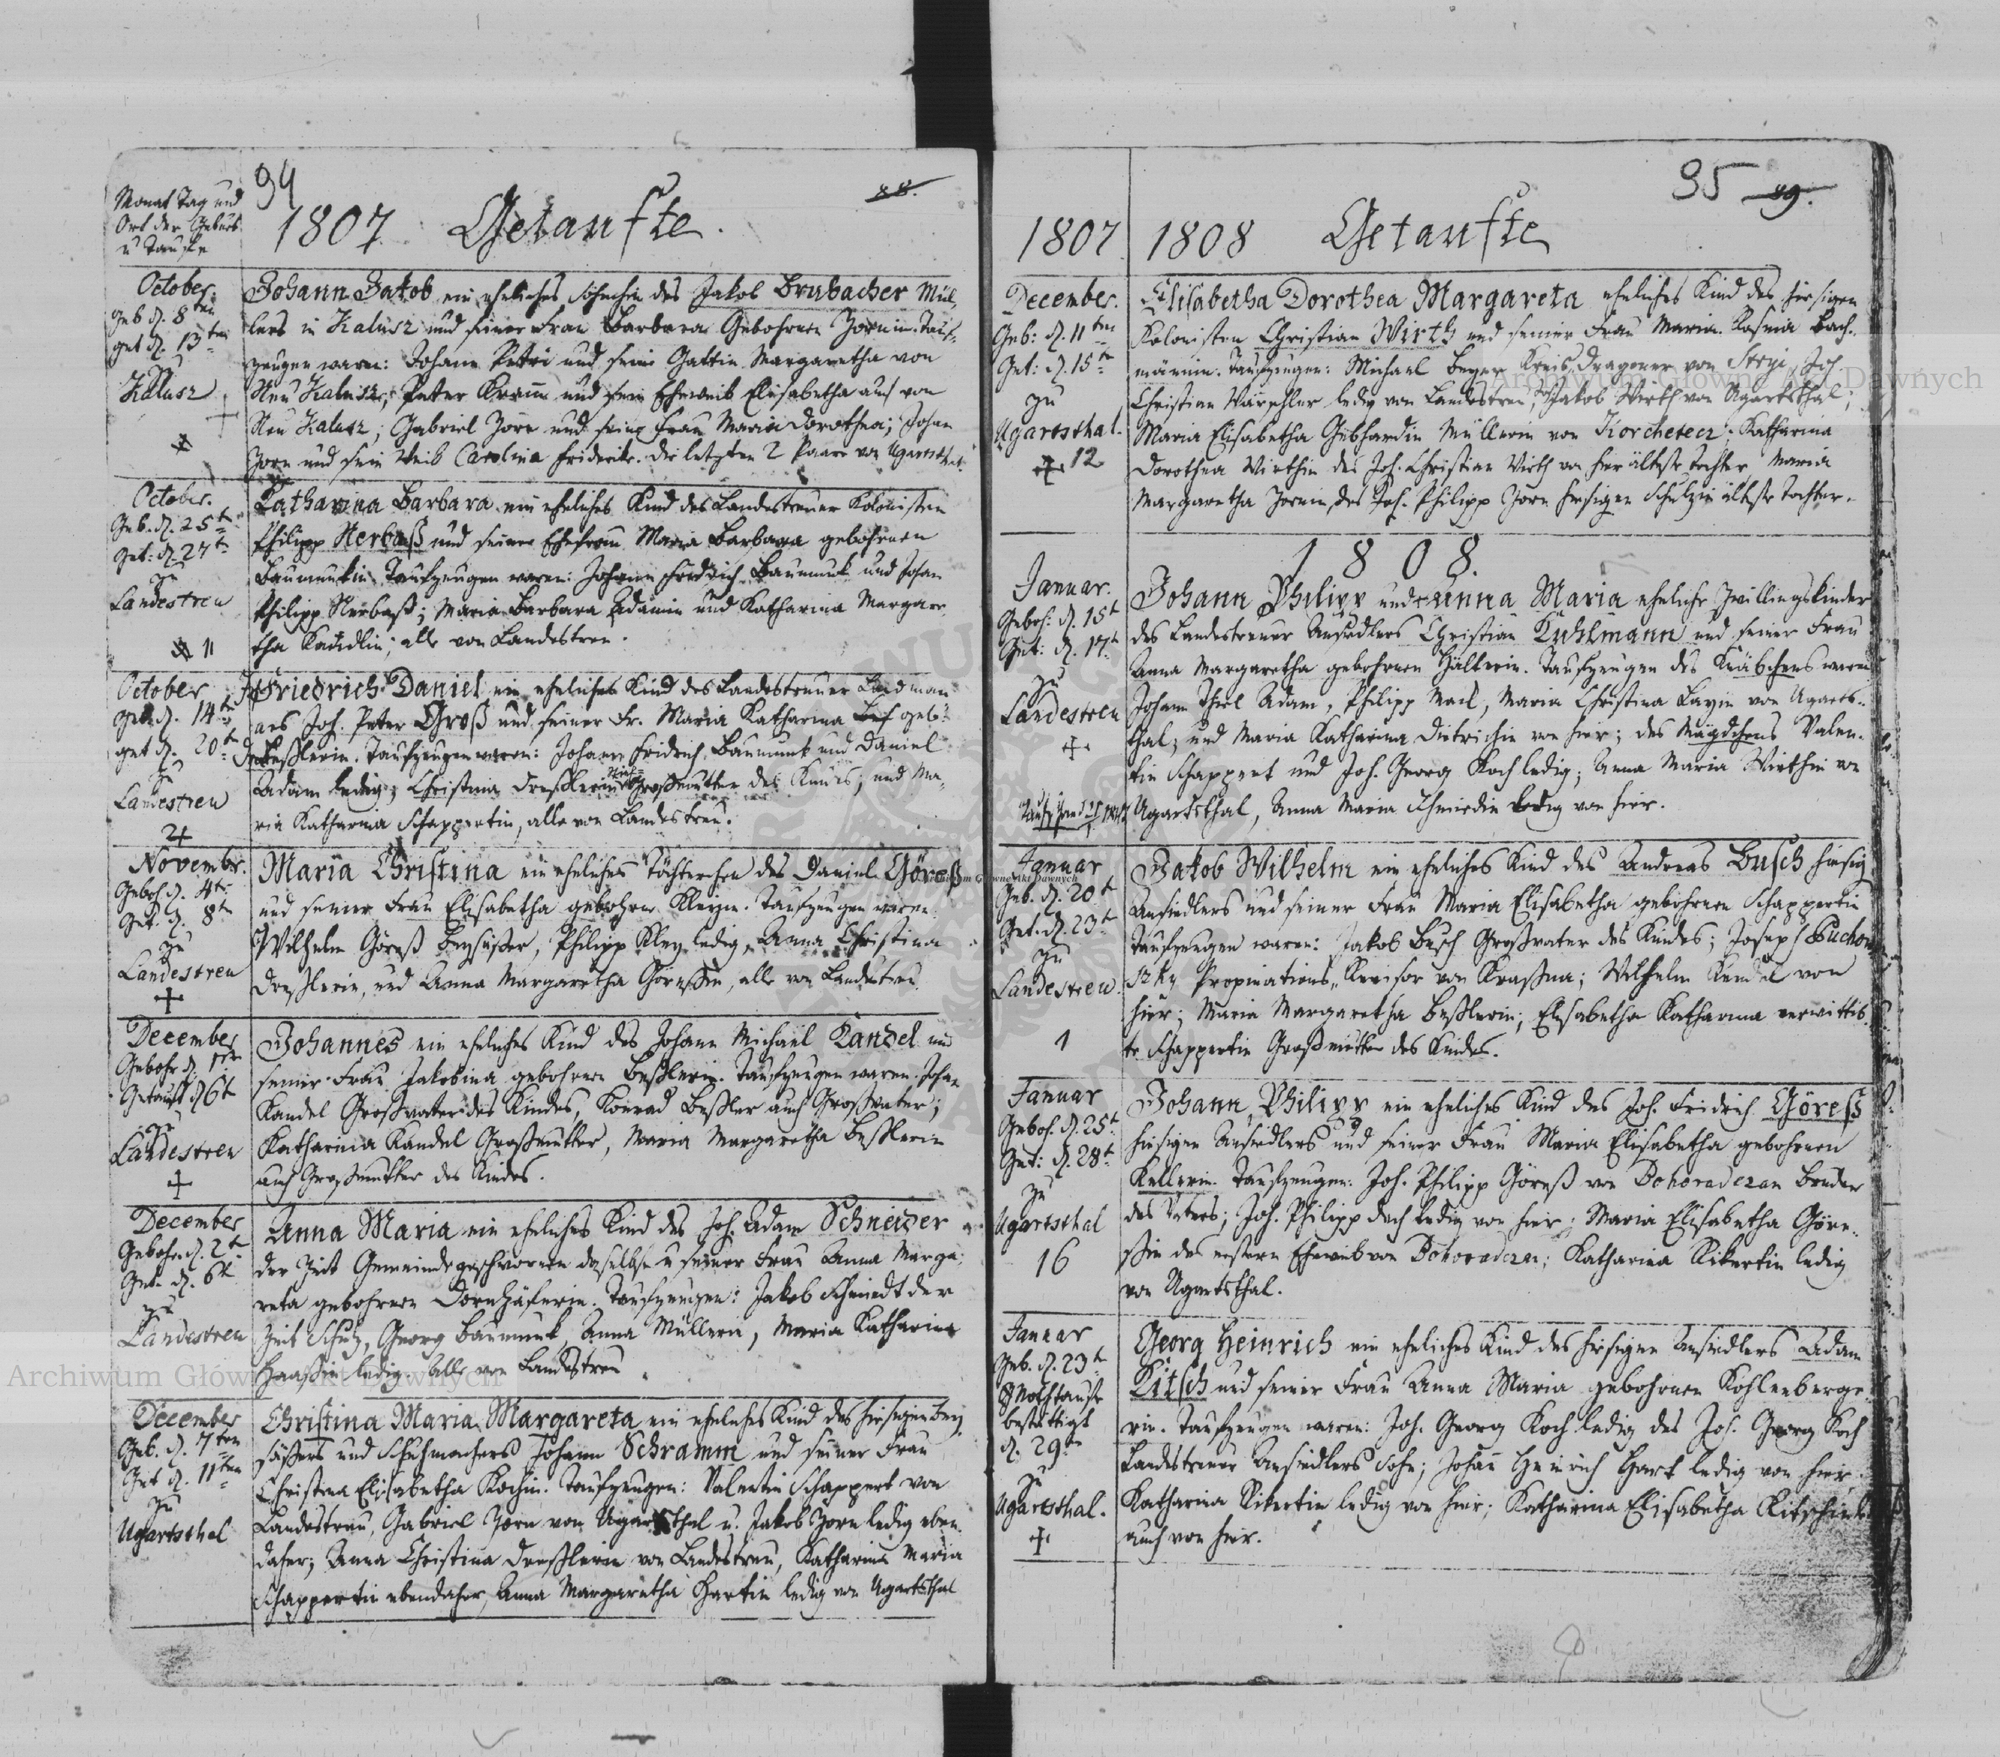 94
88.
Monat Tag und
Ort der Geburt
u Taufe
1807 Getaufte.
October
geb d. 8ten
get d. 13ten
zu
Kalusz
Johann Jakob ein eheliches Söhnchen des Jakob Brubacher Mül-
lers in Kalusz und seiner Frau Barbara Gebohrnen Jornin. Tauf-
zeugen waren: Johann Petri und seine Gattin Margaretha von
Neu Kalusz, Peter und sein Eheweib Elisabetha auch von
Neu Kalusz; Gabriel Jorn und seine Frau Maria Dorothea; Johan
Jorn und sein Weib Carolina Friderike. die letzten 2 Paare von Ugartsthal
October.
Geb. d. 25t
Get: d. 27t
zu
Landestreu
11
Katharina Barbara ein eheliches Kind des Landestreuer Kolonisten
Philipp Nerbaß und seiner Ehefrau Maria Barbara gebohrnen
Baumunkin. Taufzeugen waren: Johann Fridrich Baumunk und Johan
Philipp Nerbaß; Maria Barbara Adamin und Katharina Margare-
tha alle von Landestreu.
October
geb. d. 14t
get d. 20t
zu
Landestreu
2
Friedrich Daniel ein eheliches Kind des Landestreuer
Joh. Peter Groß und seiner Fr. Maria Katharina geb:
Dreßlerin. Taufzeugen waren: Johann Fridrich Baumunk und Daniel
Adam ledig; Christina Dreßlerin Großmutter des Kindes; und Ma-
ria Katharina Schappertin, alle von Landestreu.
Novembr.
Geboh. d. 4t
Get. d. 8t
zu
Landestreu
Maria Christina ein eheliches Töchterchen des Daniel Göreß
und seiner Frau Elisabetha gebohrne Kleyin. Taufzeugen waren
Wilhelm Göreß Beysäßer, Philipp Kley ledig, Anna Christina
Dreßlerin, und Anna Margaretha Göreßin, alle von Landestreu.
December
Gebohr. d. 1ten
Getauft d 6t
zu
Landestreu
Johannes ein eheliches Kind des Johann Michael Kandel und
seiner Frau Jakobina gebohrnen Beßlerin. Taufzeugen waren. Johan
Kandel Großvater des Kindes, Konrad Beßler auch Großvater;
Katharina Kandel Großmutter, Maria Margaretha Beßlerin
auch Großmutter des Kindes.
December
Gebohr. d. 2t
Get. d. 6t
zu
Landestreu
Anna Maria ein eheliches Kind des Joh. Adam Schneider
der Zeit Gemeindegeschworner daselbst u seiner Frau Anna Marga-
reta gebohrnen Dornhäferin. Taufzeugen: Jakob Schmidt der
Zeit Schulz, Georg Baumunk, Anna Müllerin, Maria Katharina
Haaßin ledig. alle von Landestreu
December
Geb. d. 7ten
Get d. 11ten
zu
Ugartsthal
Christina Maria Margareta ein eheliches Kind des hiesigen Bey-
säßers und Schuhmachers Johann Schramm und seiner Frau
Christina Elisabetha Kochin. Taufzeugen: Valentin Schappert von
Landestreu, Gabriel Jorn von Ugartsthal u. Jakob Jorn ledig eben
daher; Anna Christina Dreßlerin von Landestreu, Katharina Maria
Schappertin ebendaher, Anna Margaretha Hartin ledig von Ugartsthal
95 89.
1807 1808 Getaufte
December.
Geb: d. 11ten
Get: d. 15t
zu
Ugartsthal.
12
Elisabetha Dorothea Margareta eheliches Kind des hiesigen
Kolonisten Christian Wirth und seiner Frau Maria Rosina Bach-
männin. Taufzeugen: Michael Beyer Kreis Dragoner von Stryi, Joh.
Christian ledig von Landestreu, Jakob Wirth von Ugartsthal;
Maria Elisabetha Gebhardin Müllerin von Korchetecz; Katharina
Dorothea Wirthin des Joh. Christian Wirth von hier älteste Tochter Maria
Margaretha Jornin des Joh. Philipp Jorn hiesigen Schulzen älteste Tochter.
1808.
Januar.
Geboh: d. 15t
Get: d. 17t
zu
Landestreu
Johann Philipp und Anna Maria eheliche Zwillingskinder
des Landestreuer Ansiedlers Christian Kuhlmann und seiner Frau
Anna Margaretha gebohrnen Hällerin. Taufzeugen des Knäbchens waren
Johann Theil Adam, Philipp Mack, Maria Christina Bayin von Ugarts-
thal, und Maria Katharina Dietrichin von hier; des Mägdchens Valen-
tin Schappert und Joh. Georg Koch ledig; Anna Maria Wirthin von
Ugartsthal, Anna Maria Schmiedin ledig von hier.
Januar
Geb. d. 20t
Get. d. 23t
zu
Landestreu.
1
Jakob Wilhelm ein eheliches Kind des Andreas Busch hiesig
Ansiedlers und seiner Frau Maria Elisabetha gebohrnen Schappertin
Taufzeugen waren: Jakob Busch Großvater des Kindes; Joseph Puchon
szky Propinations-Revisor von Kraßna; Wilhelm Kendel von
hier; Maria Margaretha Beßlerin; Elisabetha Katharina verwittib-
te Schappertin Großmutter des Kindes.
Januar
Geboh. d. 25t
Get: d. 28t
zu
Ugartsthal
16
Johann Philipp ein eheliches Kind des Joh. Fridrich Göreß
hiesigen Ansiedlers und seiner Frau Maria Elisabetha gebohrnen
Kellerin. Taufzeugen: Joh. Philipp Göreß von Dohoraderan Bruder
des Vaters; Joh. Philipp Dech ledig von hier; Maria Elisabetha Göre-
ßin des erstern Eheweib von Dohoraderan; Katharina Rikertin ledig
von Ugartsthal.
Januar
Geb. d. 23t
Nothtaufe
bestättigt
d. 29t
zu
Ugartsthal.
Georg Heinrich ein eheliches Kind des hiesigen Ansiedlers Adam
Kitsch und seiner Frau Anna Maria gebohrnen Kohlenberge-
rin. Taufzeugen waren: Joh. Georg Koch ledig des Joh. Georg Koch
Landestreuer Ansiedlers Sohn; Johann Heinrich Hark ledig von hier
Katharina Rikertin ledig von hier; Katharina Elisabetha Kitschin
auch von hier.
Archiwum Główne Akt Dawnych
Archiwum Główne Akt Dawnych